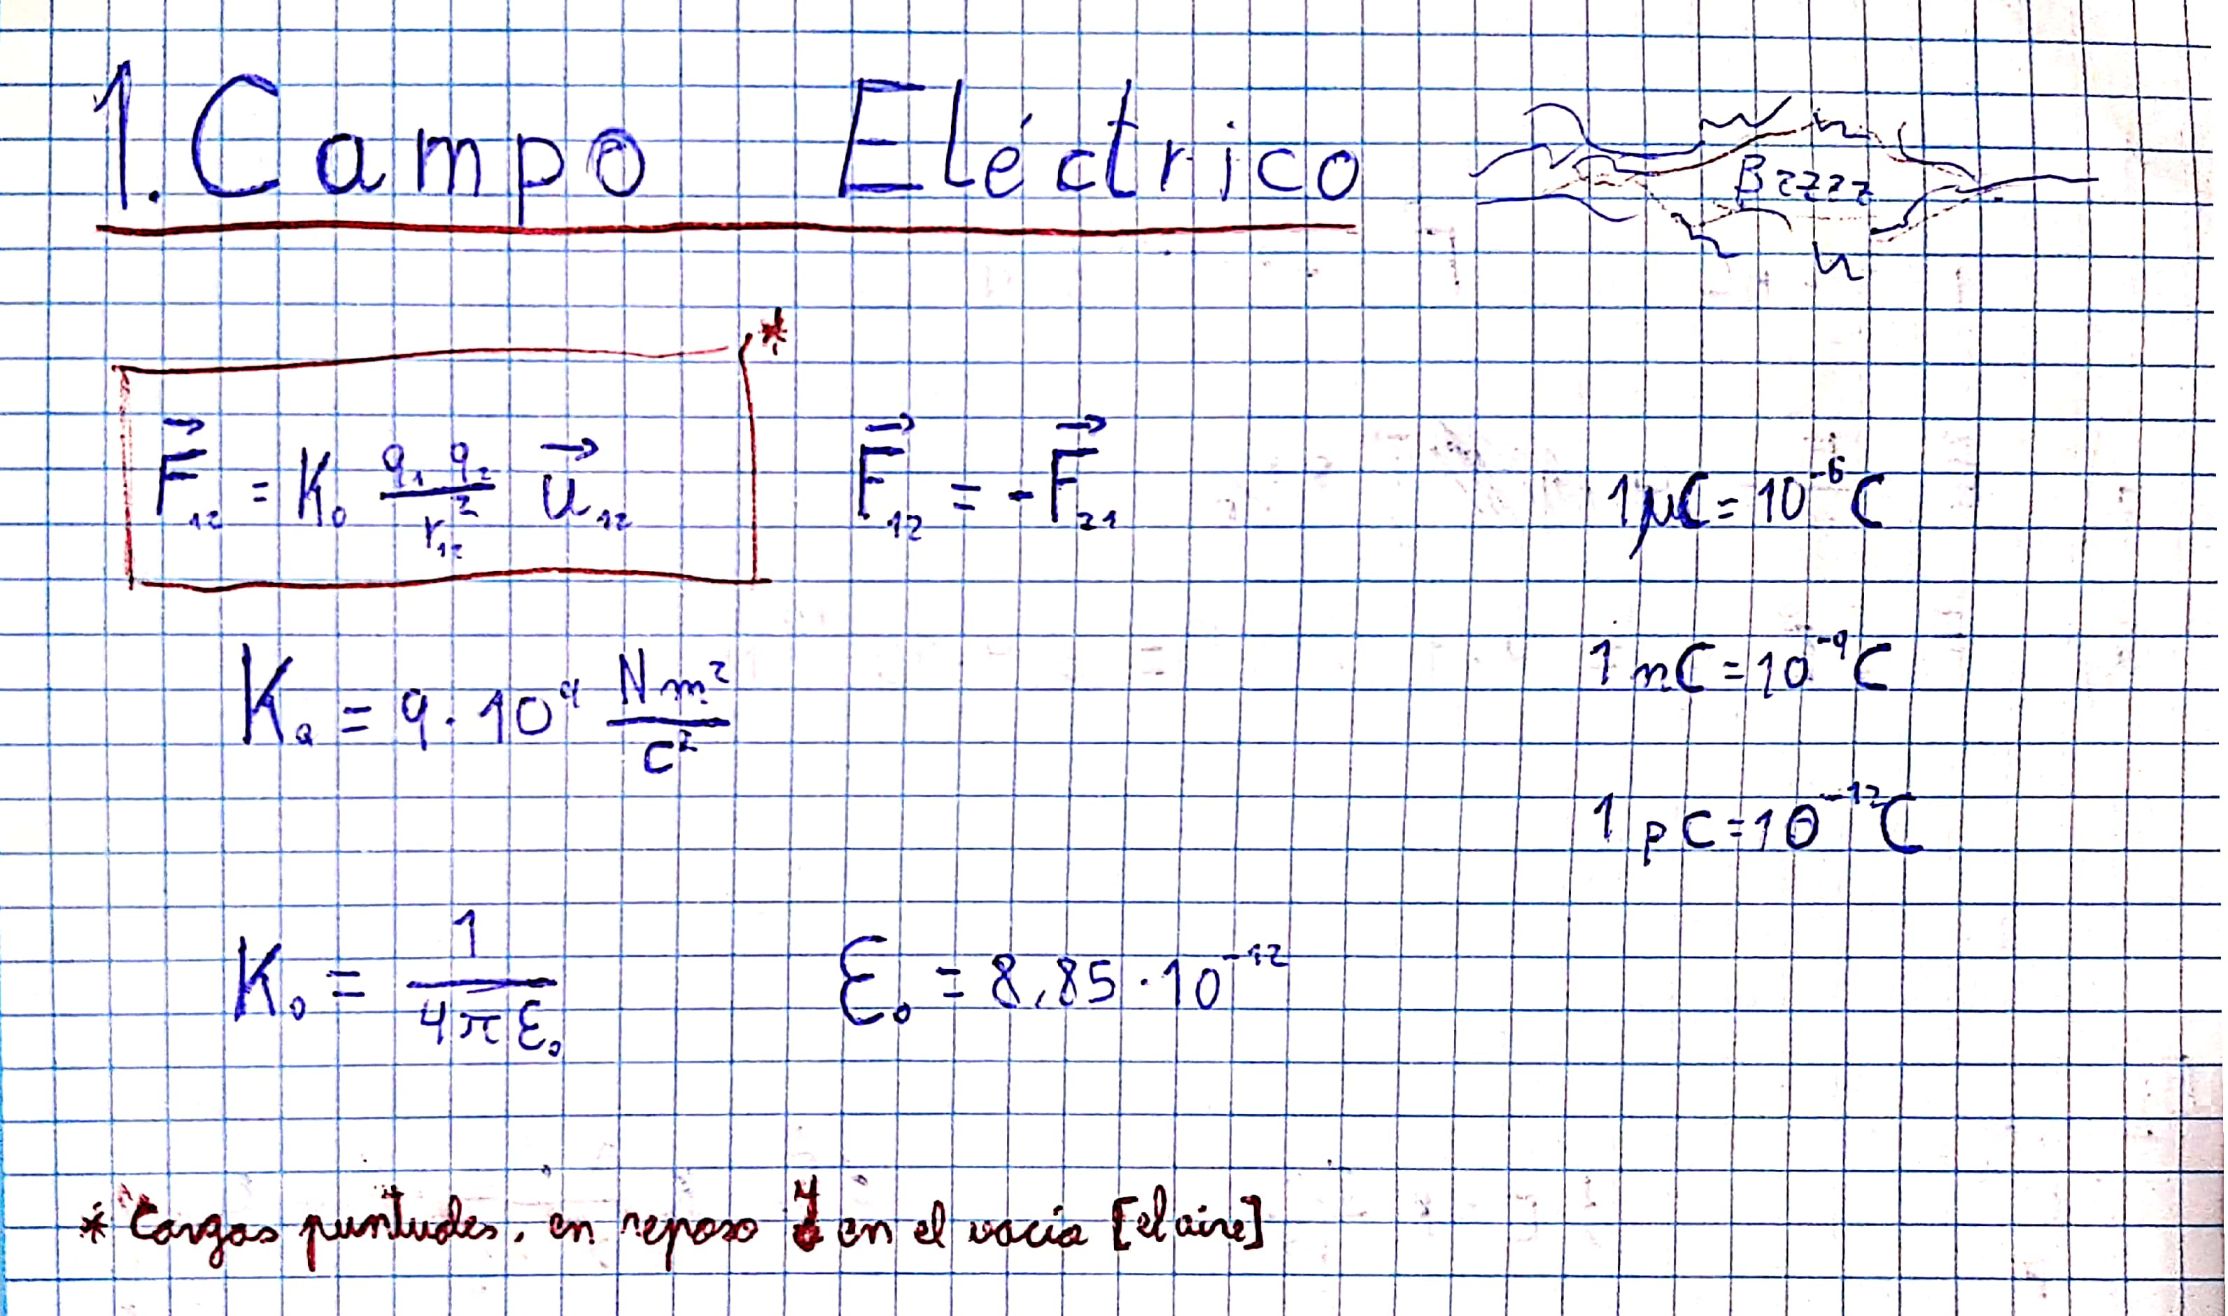 1. Campo Eléctrico
Bzzzz
F⃗₁₂ = K₀ q₁ q₂ / r₁₂² u⃗₁₂ *
F⃗₁₂ = - F⃗₂₁
1 μC = 10⁻⁶ C
K₀ = 9 · 10⁹ N m² / C²
1 nC = 10⁻⁹ C
1 pC = 10⁻¹² C
K₀ = 1 / 4πε₀
ε₀ = 8,85 · 10⁻¹²
* Cargas puntuales, en reposo y en el vacío [el aire]